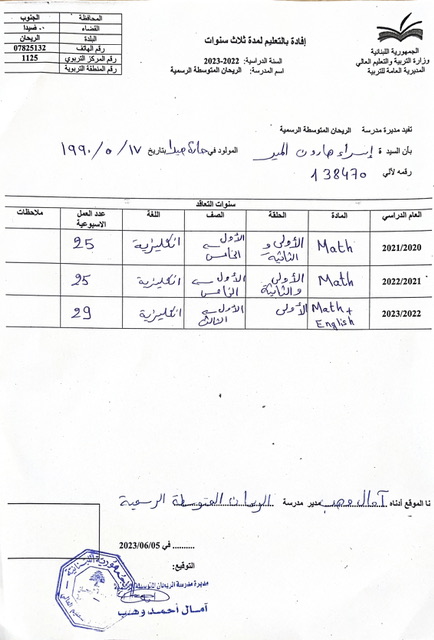 الجمهورية اللبنانية
وزارة التربية والتعليم العالي
المديرية العامة للتربية
إفادة بالتعليم لمدة ثلاث سنوات
السنة الدراسية: 2022-2023
اسم المدرسة: الريحان المتوسطة الرسمية
المحافظة الجنوب
القضاء صيدا
البلدة الريحان
رقم الهاتف 07825132
رقم المركز التربوي 1125
رقم المنطقة التربوية
تفيد مديرة مدرسة الريحان المتوسطة الرسمية
بأن السيد ة إسراء هارون المير المولود في حارة صيدا بتاريخ ١٧/٥/١٩٩٠
رقمه لألي 138470
سنوات التعاقد
العام الدراسي المادة الحلقة الصف اللغة عدد العمل الاسبوعية ملاحظات
2021/2020 Math الأولى و الثانية الأول _ الخامس انكليزية 25
2022/2021 Math الأولى والثانية الأول _ الخامس انكليزية 25
2023/2022 Math + English الأولى الأول _ الثالث انكليزية 29
نا الموقع أدناه آمال وهب مدير مدرسة الريحان المتوسطة الرسمية
في 2023/06/05 ..........
التوقيع:
مديرة مدرسة الريحان المتوسطة الرسمية
آمال أحمد وهب